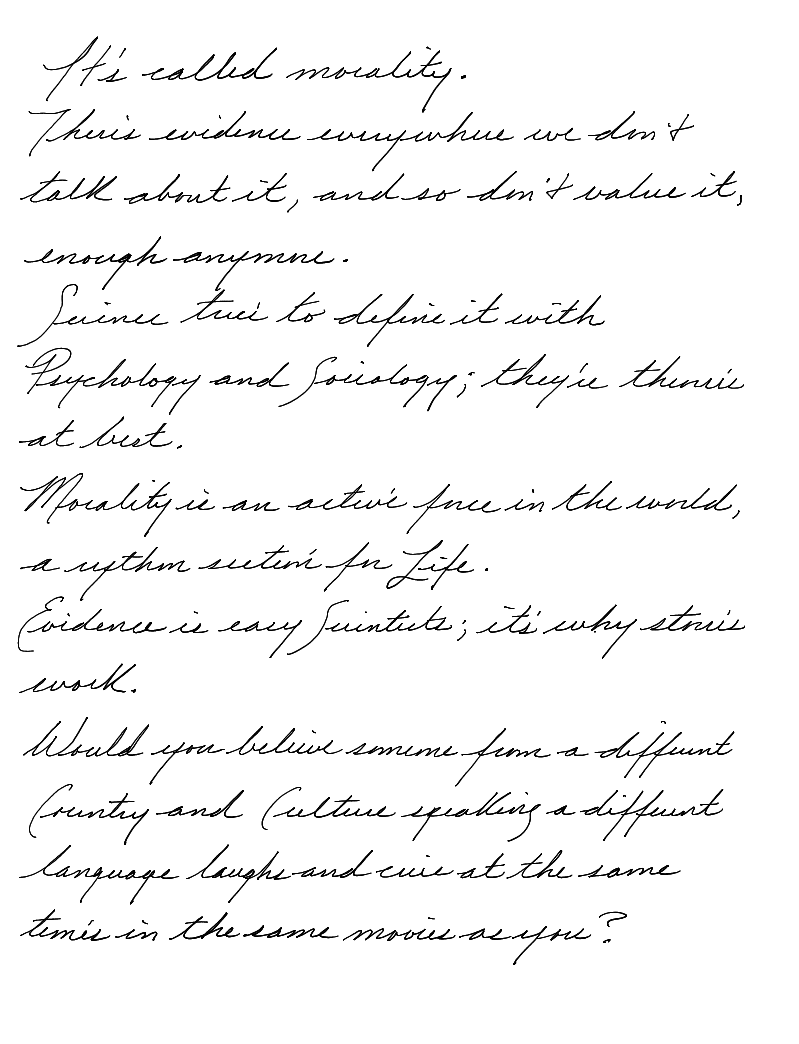 It's called morality.
There's evidence everywhere we don't
talk about it, and so don't value it,
enough anymore.
Science tries to define it with
Psychology and Sociology; they're theories
at best.
Morality is an active force in the world,
a rythm section for Life.
Evidence is easy Scientists; it's why stories
work.
Would you believe someone from a different
Country and Culture speaking a different
language laughs and cries at the same
times in the same movies as you?